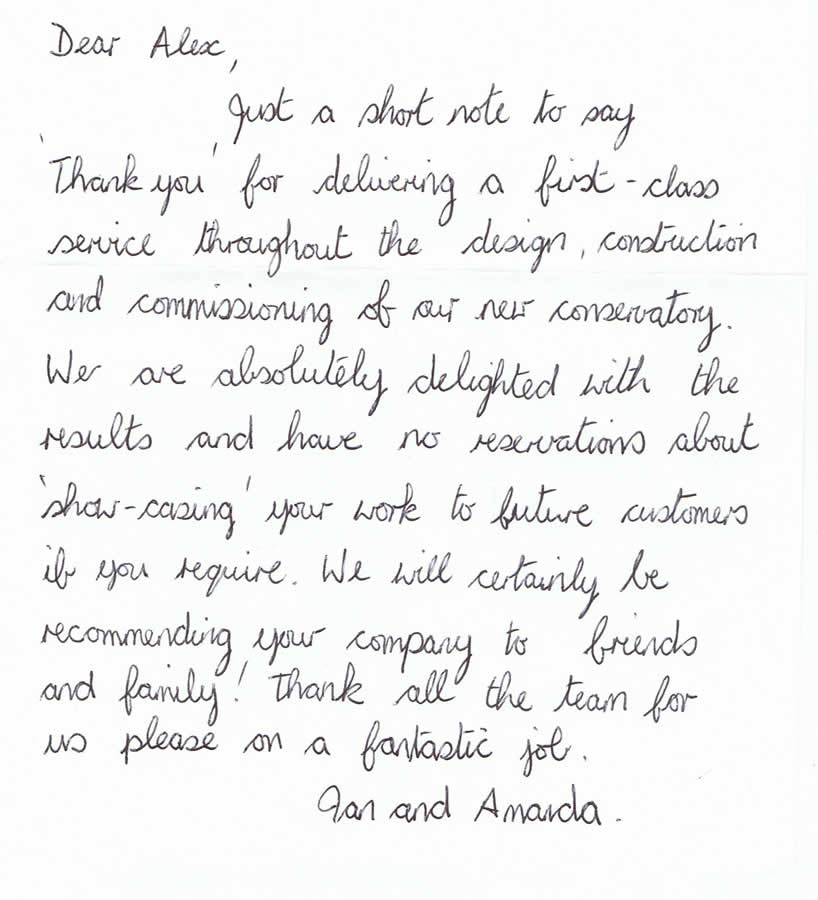 Dear Alex,
Just a short note to say
'Thank you' for delivering a first-class
service throughout the design, construction
and commissioning of our new conservatory.
We are absolutely delighted with the
results and have no reservations about
'show-casing' your work to future customers
if you require. We will certainly be
recommending your company to friends
and family! Thank all the team for
us please on a fantastic job.
Ian and Amanda.